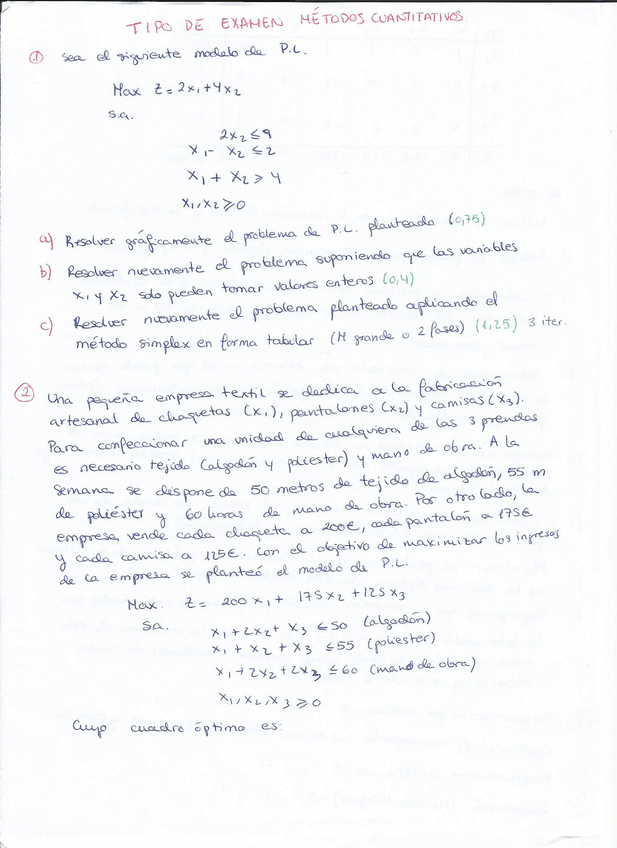 TIPO DE EXAMEN MÉTODOS CUANTITATIVOS.
① Sea el siguiente modelo de P.L.
Max Z = 2x₁ + 4x₂
s.a.
2x₂ ≤ 9
x₁ - x₂ ≤ 2
x₁ + x₂ ≥ 4
x₁, x₂ ≥ 0
a) Resolver gráficamente el problema de P.L. planteada (0,75)
b) Resolver nuevamente el problema suponiendo que las variables
x₁ y x₂ solo pueden tomar valores enteros (0,4)
c) Resolver nuevamente el problema planteado aplicando el
método simplex en forma tabular (M grande o 2 fases) (1,25) 3 iter.
② Una pequeña empresa textil se dedica a la fabricación
artesanal de chaquetas (x₁), pantalones (x₂) y camisas (x₃).
Para confeccionar una unidad de cualquiera de las 3 prendas
es necesario tejido (algodón y poliester) y mano de obra. A la
semana se dispone de 50 metros de tejido de algodón, 55 m
de poliéster y 60 horas de mano de obra. Por otro lado, la
empresa vende cada chaqueta a 200€, cada pantalón a 175€
y cada camisa a 125€. Con el objetivo de maximizar los ingresos
de la empresa se planteó el modelo de P.L.
Max. Z = 200x₁ + 175x₂ + 125x₃
Sa. x₁ + 2x₂ + x₃ ≤ 50 (algodón)
x₁ + x₂ + x₃ ≤ 55 (poliester)
x₁ + 2x₂ + 2x₃ ≤ 60 (mano de obra)
x₁, x₂, x₃ ≥ 0
Cuyo cuadro óptimo es: